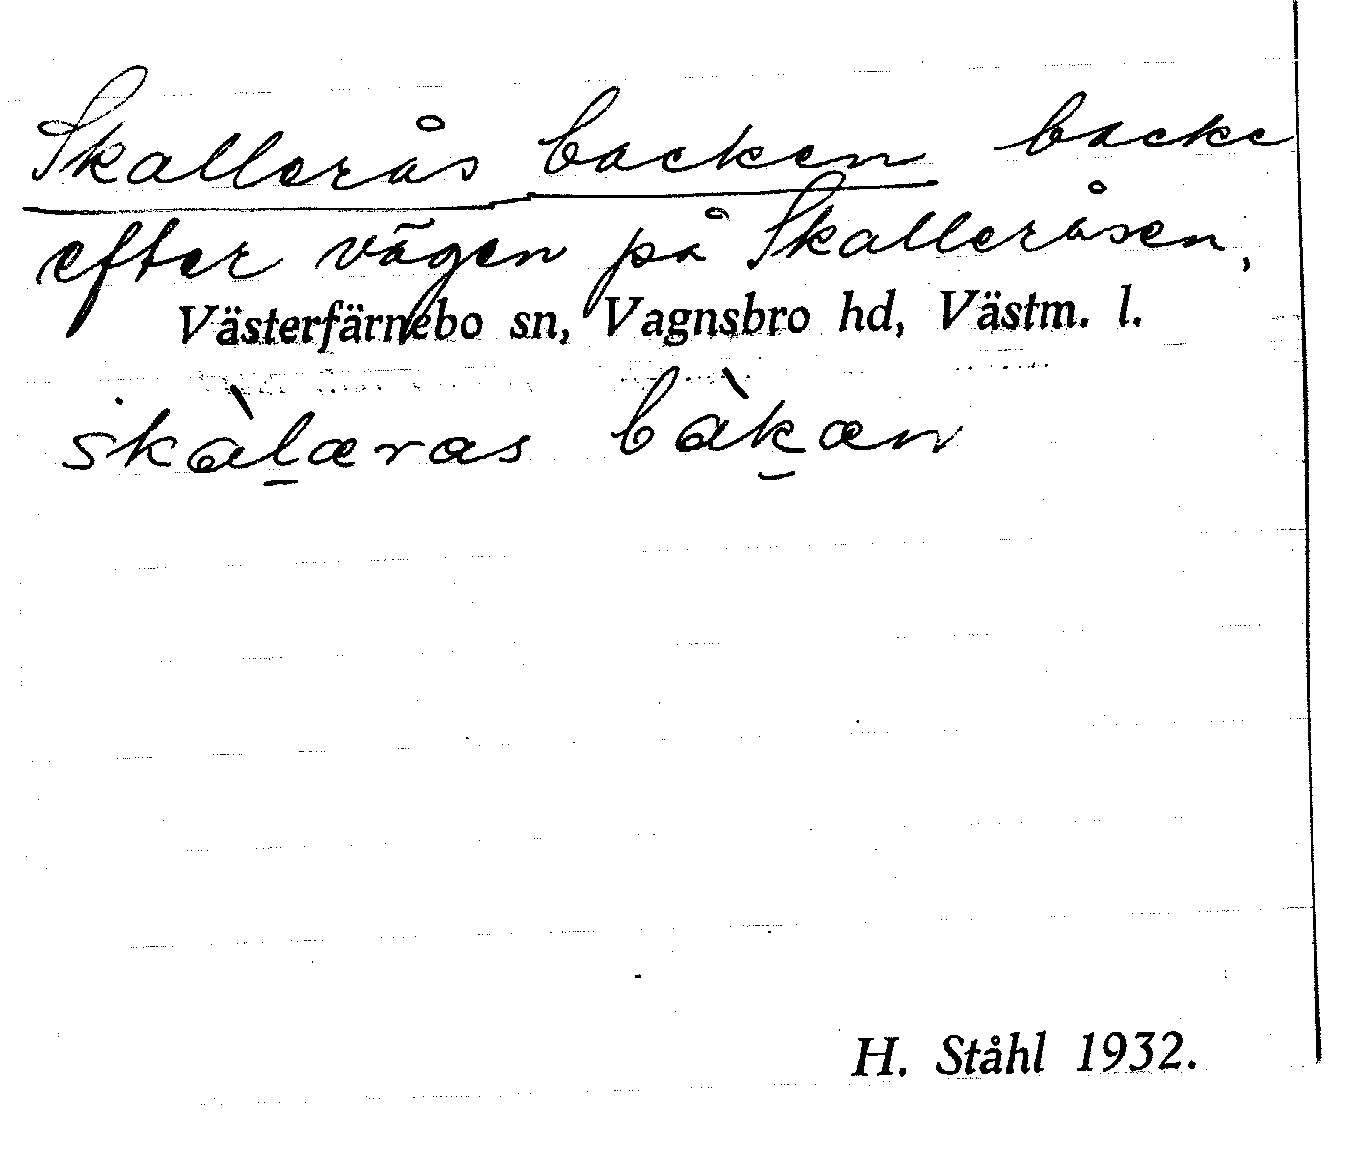 Skallerås backen backe
efter vägen på Skalleråsen,
Västerfärnebo sn, Vagnsbro hd, Västm. l.
skàl̠æras bàk̠æn
H. Ståhl 1932.